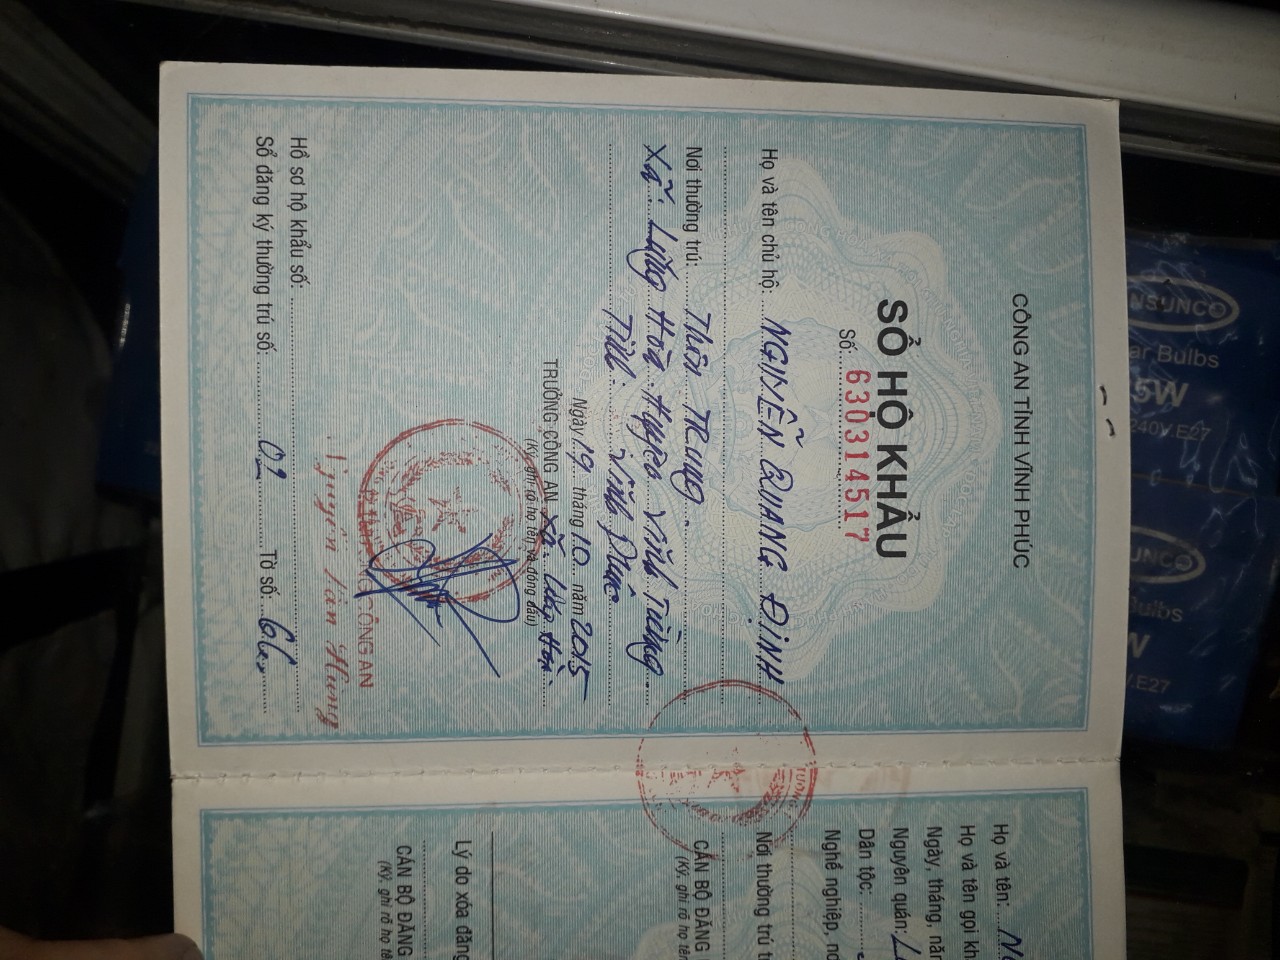 CÔNG AN TỈNH VĨNH PHÚC
SỔ HỘ KHẨU
Số: 630314517
Họ và tên chủ hộ: NGUYỄN QUANG ĐỊNH
Nơi thường trú: Thôn TRung
Xã. Lũng Hoà. Huyện Vĩnh Tường
Tỉnh. Vĩnh Phúc
Ngày 19 tháng 10 năm 2015
TRƯỞNG CÔNG AN Xã. Lũng Hoà.
(Ký, ghi rõ họ tên và đóng dấu)
CÔNG AN
Nguyễn Văn Hùng
Hồ sơ hộ khẩu số:
Sổ đăng ký thường trú số: 02 Tờ số: 66
Họ và tên:
Họ và tên gọi kh
Ngày, tháng, năm
Nguyên quán:
Dân tộc:
Nghề nghiệp, nơ
Nơi thường trú t
CÁN BỘ ĐĂNG
(Ký, ghi rõ họ tên
Lý do xóa đăng
CÁN BỘ ĐĂNG
(Ký, ghi rõ họ tê
NSUNCO
ar Bulbs
5W
240V.E27
SUNCO
Bulbs
W
.E27